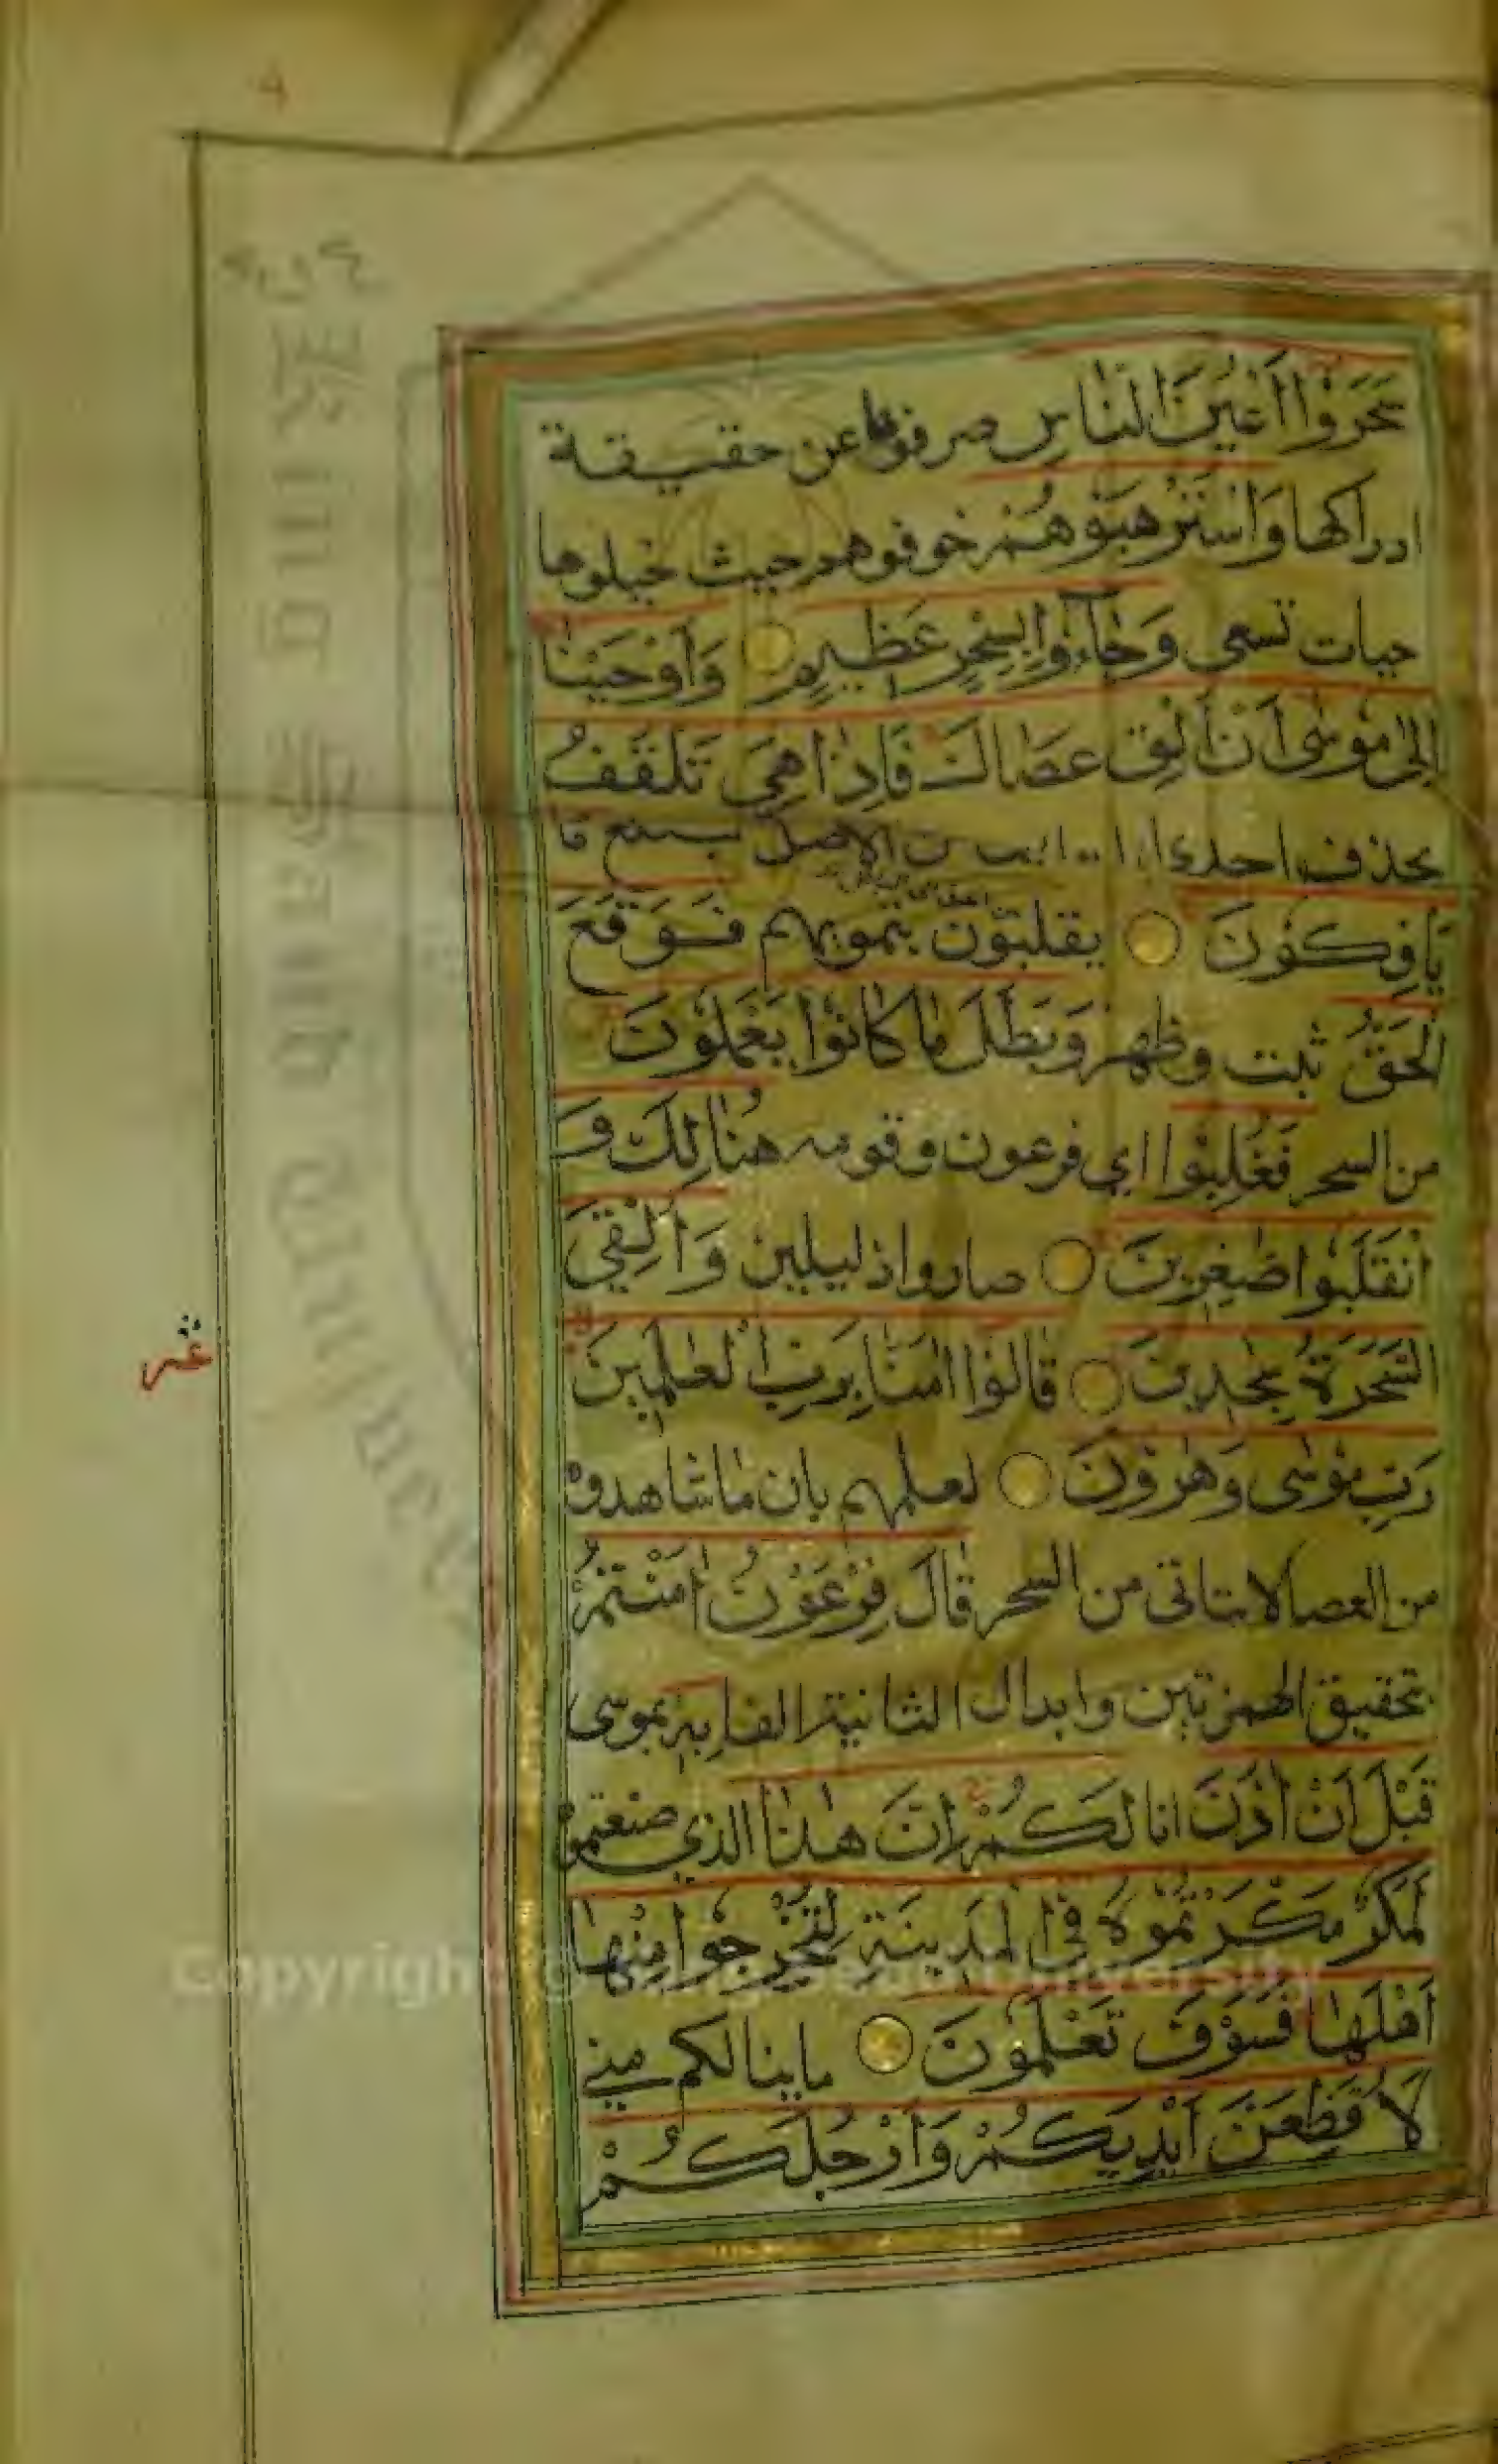 سَحَرُوْا اَعْيُنَ النَّاسِ صرفوها عن حقيقة
ادراكها وَاسْتَرْهَبُوْهُمْ خوفوهم حيث خيلوها
حيات تسعى وَجَآءُوْا بِسِحْرٍ عَظِيْمٍ وَاَوْحَيْنَا
اِلٰى مُوْسٰى اَنْ اَلْقِ عَصَاكَ فَاِذَا هِيَ تَلَقَّفُ
بحذف احدى من الاصل تبتلع مَا
يَاْفِكُوْنَ يقلبون بتمويههم فَوَقَعَ
الْحَقُّ ثبت وظهر وَبَطَلَ مَا كَانُوْا يَعْمَلُوْنَ
من السحر فَغُلِبُوْا اي فرعون وقومه هُنَالِكَ وَ
انْقَلَبُوْا صٰغِرِيْنَ صاروا ذليلين وَاُلْقِيَ
السَّحَرَةُ سٰجِدِيْنَ قَالُوْا اٰمَنَّا بِرَبِّ الْعٰلَمِيْنَ
رَبِّ مُوْسٰى وَهٰرُوْنَ لعلمهم بان ما شاهدوه
من العصا لا يتاتى من السحر قَالَ فِرْعَوْنُ اٰمَنْتُمْ
بتحقيق الهمزتين وابدال الثانية الفا بِهٖ بموسى
قَبْلَ اَنْ اٰذَنَ انا لَكُمْ اِنَّ هٰذَا الذي صنعتموه
لَمَكْرٌ مَّكَرْتُمُوْهُ فِى الْمَدِيْنَةِ لِتُخْرِجُوْا مِنْهَا
اَهْلَهَا فَسَوْفَ تَعْلَمُوْنَ ما ينالكم مني
لَاُقَطِّعَنَّ اَيْدِيَكُمْ وَاَرْجُلَكُمْ